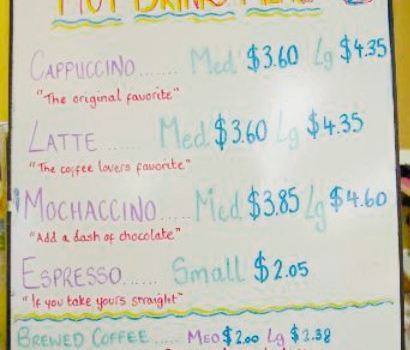 HOT DRINKS MENU
CAPPUCCINO....... Med $3.60 Lg $4.35
"The original favorite"
LATTE ....... Med $3.60 Lg $4.35
"The coffee lovers favorite"
MOCHACCINO..... Med $3.85 Lg $4.60
"Add a dash of chocolate"
ESPRESSO....... Small $2.05
"If you take yours straight"
BREWED COFFEE ..... MED $2.00 Lg $2.38